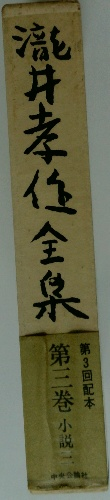 瀧井孝作全集
第3回配本
第三巻 小説 二
中央公論社